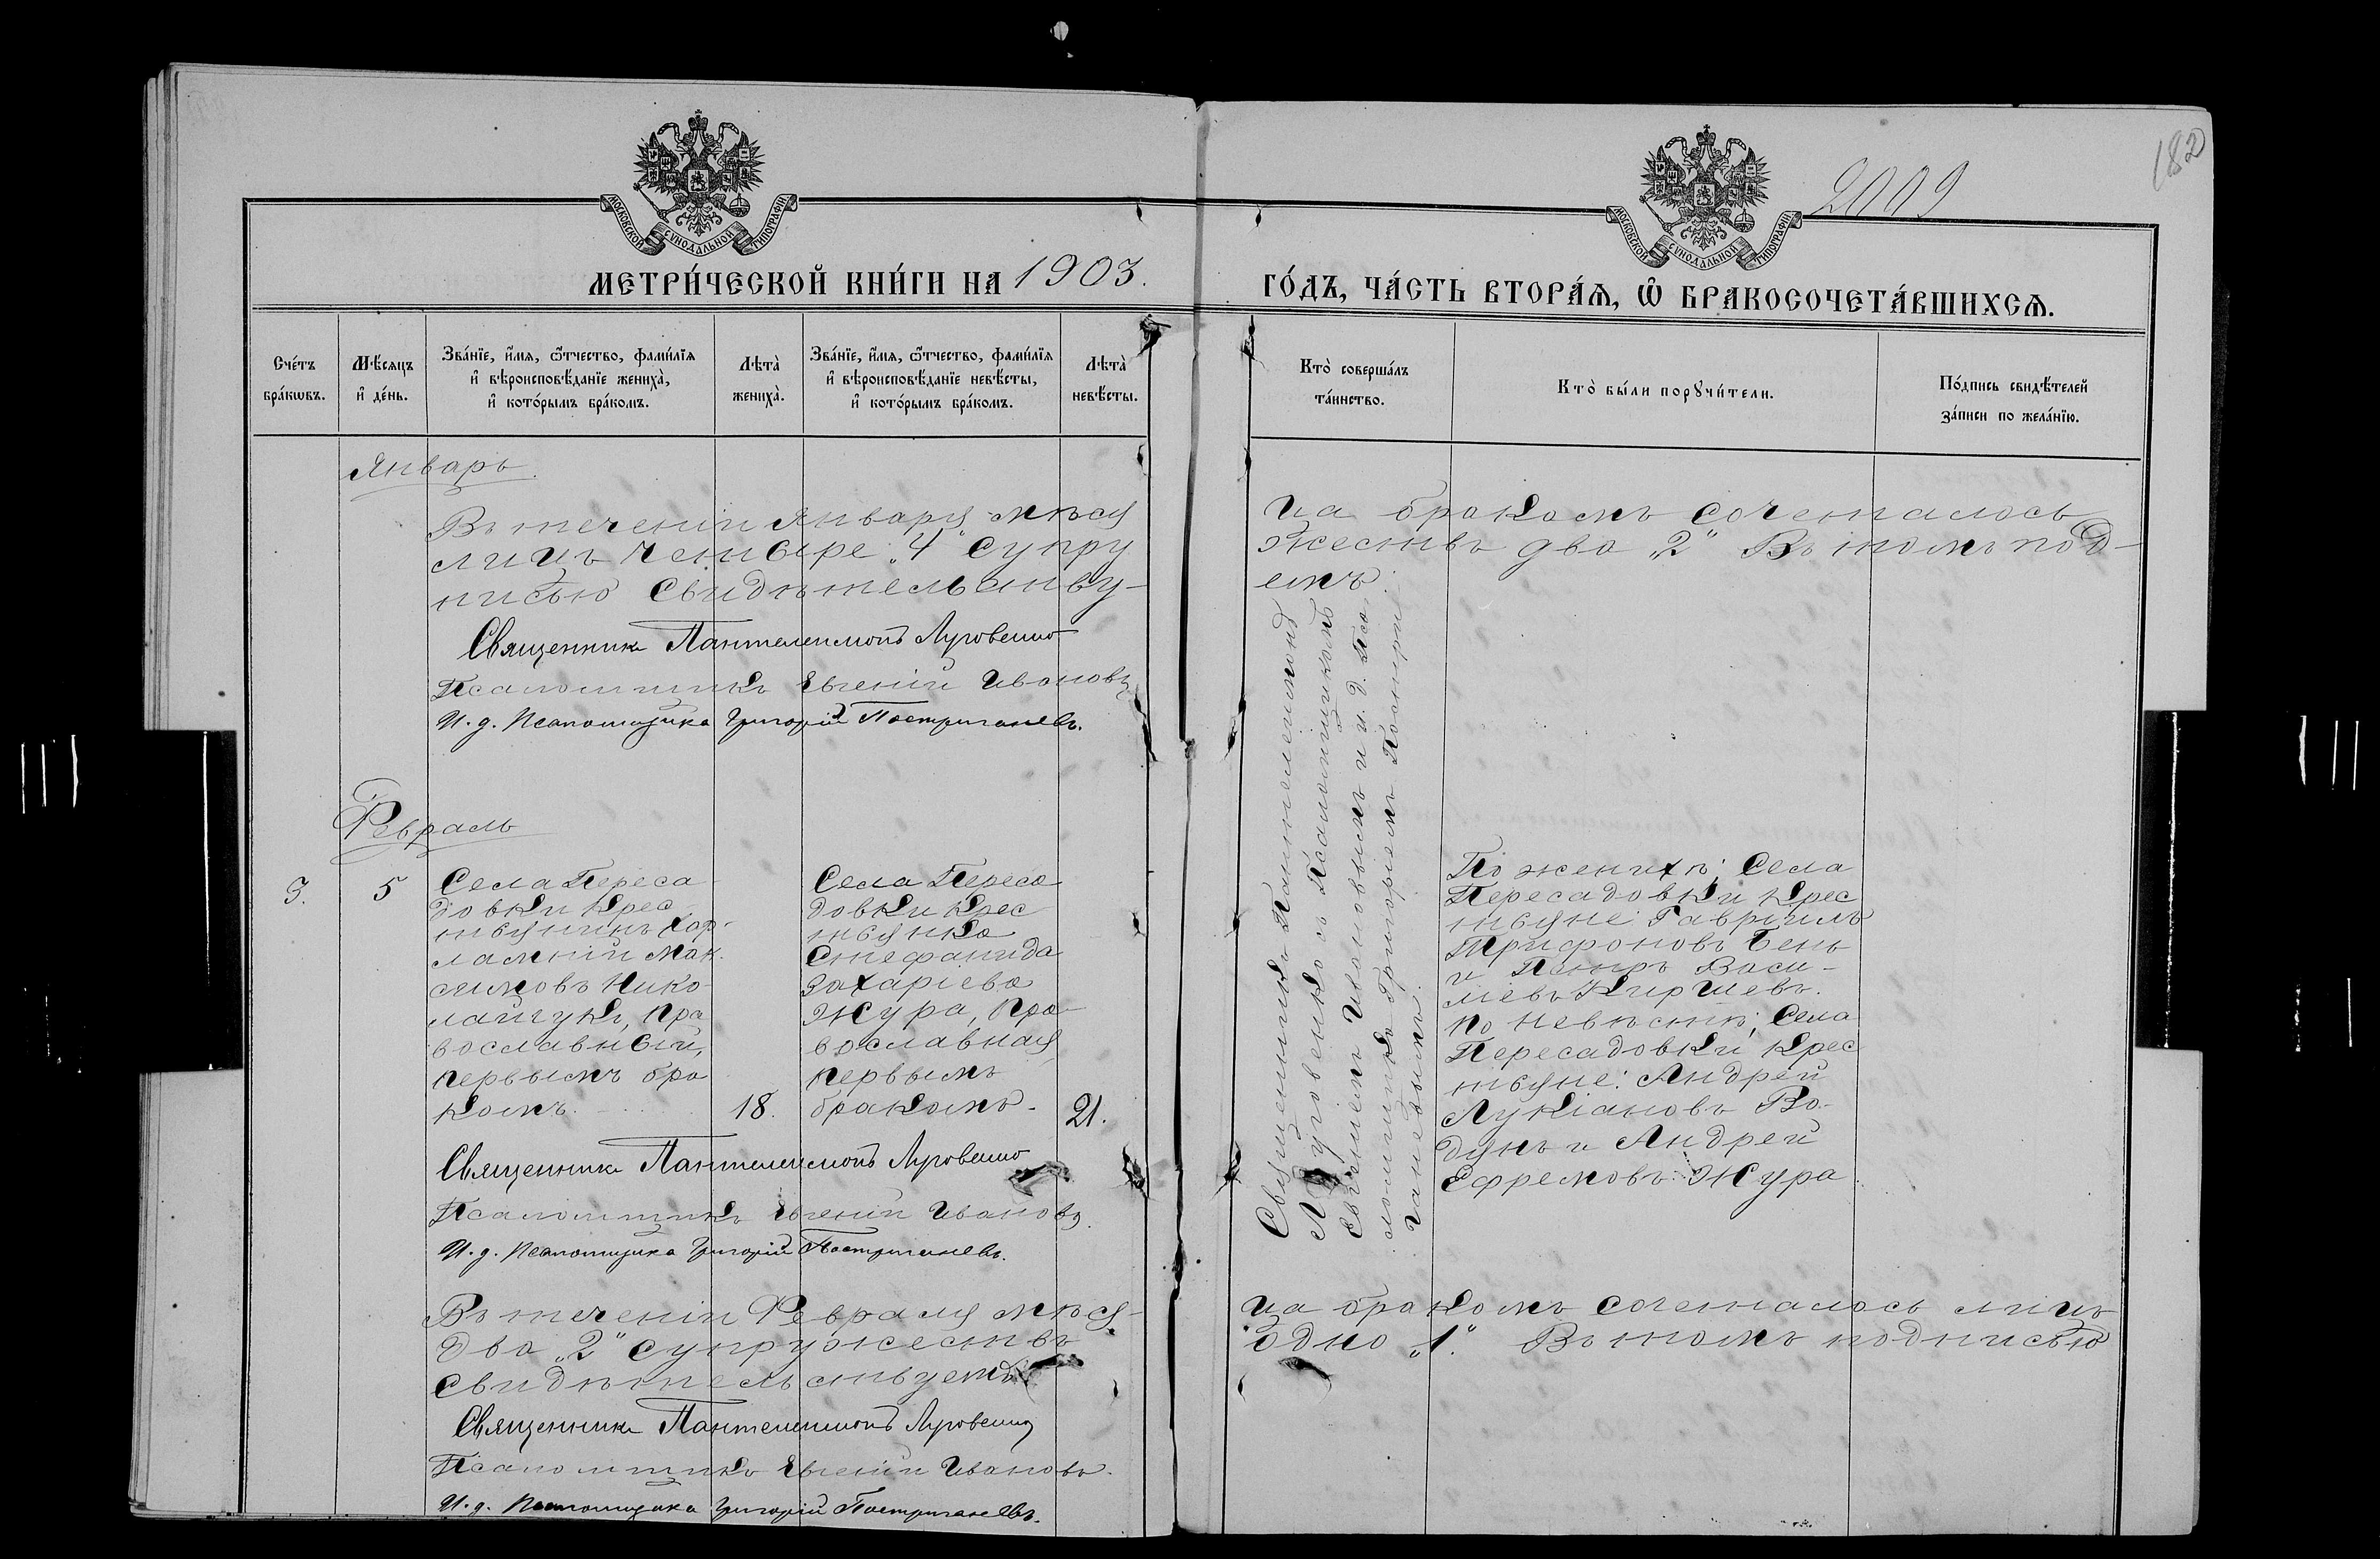 182
2009
МОСКОВСКОЙ СѴНОДАЛЬНОЙ ТИПОГРАФІИ
МОСКОВСКОЙ СѴНОДАЛЬНОЙ ТИПОГРАФІИ
МЕТРИ́ЧЕСКОЙ КНИ́ГИ НА 1903.
ГО́ДЪ, ЧА́СТЬ ВТОРА́Ѧ, Ѽ БРАКОСОЧЕТА́ВШИХСѦ.
Сче́тъ
бра́кѡвъ.
Мѣ́сяцъ
и҆ де́нь.
Зва́нїе, и҆́мя, ѻ҆́тчество, фами́лїя
и҆ вѣроисповѣ́данїе жениха̀,
и҆ кото́рымъ бра́комъ.
Лѣта̀
жениха̀.
Зва́нїе, и҆́мя, ѻ҆́тчество, фами́лїя
и҆ вѣроисповѣ́данїе невѣ́сты,
и҆ кото́рымъ бра́комъ.
Лѣта̀
невѣ́сты.
Кто̀ соверша́лъ
та́инство.
Кто̀ бы́ли порꙋчи́тели.
По́дпись свидѣ́телей
за́писи по жела́нїю.
Январь.
Въ теченіи января мѣся
ца бракомъ сочеталось
лицъ четыре „4“ супру
жествъ два „2“ Въ томъ под-
писью свидѣтельству-
емъ.
Священникъ Пантелеимонъ Луговенко
Псаломщикъ Евгеній Ивановъ
И. д. Псаломщика Григорій Постриганевъ.
Февраль
3.
5
Села Переса
довки крес
тьянинъ Хар-
лампій Мак-
симовъ Нико-
лайчукъ, пра
вославный,
первымъ бра
комъ.
18.
Села Переса
довки крес
тьянка
Стефанида
Захаріева
Жура, пра-
вославная
первымъ
бракомъ.
21.
Священникъ Пантелеимонъ
Луговенко со Псаломщикомъ
Евгеніемъ Ивановымъ и и. д. Пса-
ломщика Григоріемъ Постри
ганевымъ.
По женихѣ: Села
Пересадовки крес
тьяне: Гавріилъ
Трифоновъ Бень
и Петръ Васи-
ліевъ Киршевъ.
по невѣстѣ; Села
Пересадовки крес
тьяне: Андрей
Лукіановъ Во-
дунъ и Андрей
Ефремовъ Жура.
Священникъ Пантелеимонъ Луговенко
Псаломщикъ Евгеній Ивановъ.
И. д. Псаломщика Григорій Постриганевъ.
Въ теченіи Февраля мѣся-
ца бракомъ сочеталось лицъ
два „2“ супружествъ
одно „1“. Въ томъ подписью
свидѣтельствуемъ.
Священникъ Пантелеимонъ Луговенко
Псаломщикъ Евгеній Ивановъ.
И. д. Псаломщика Григорій Постриганевъ.